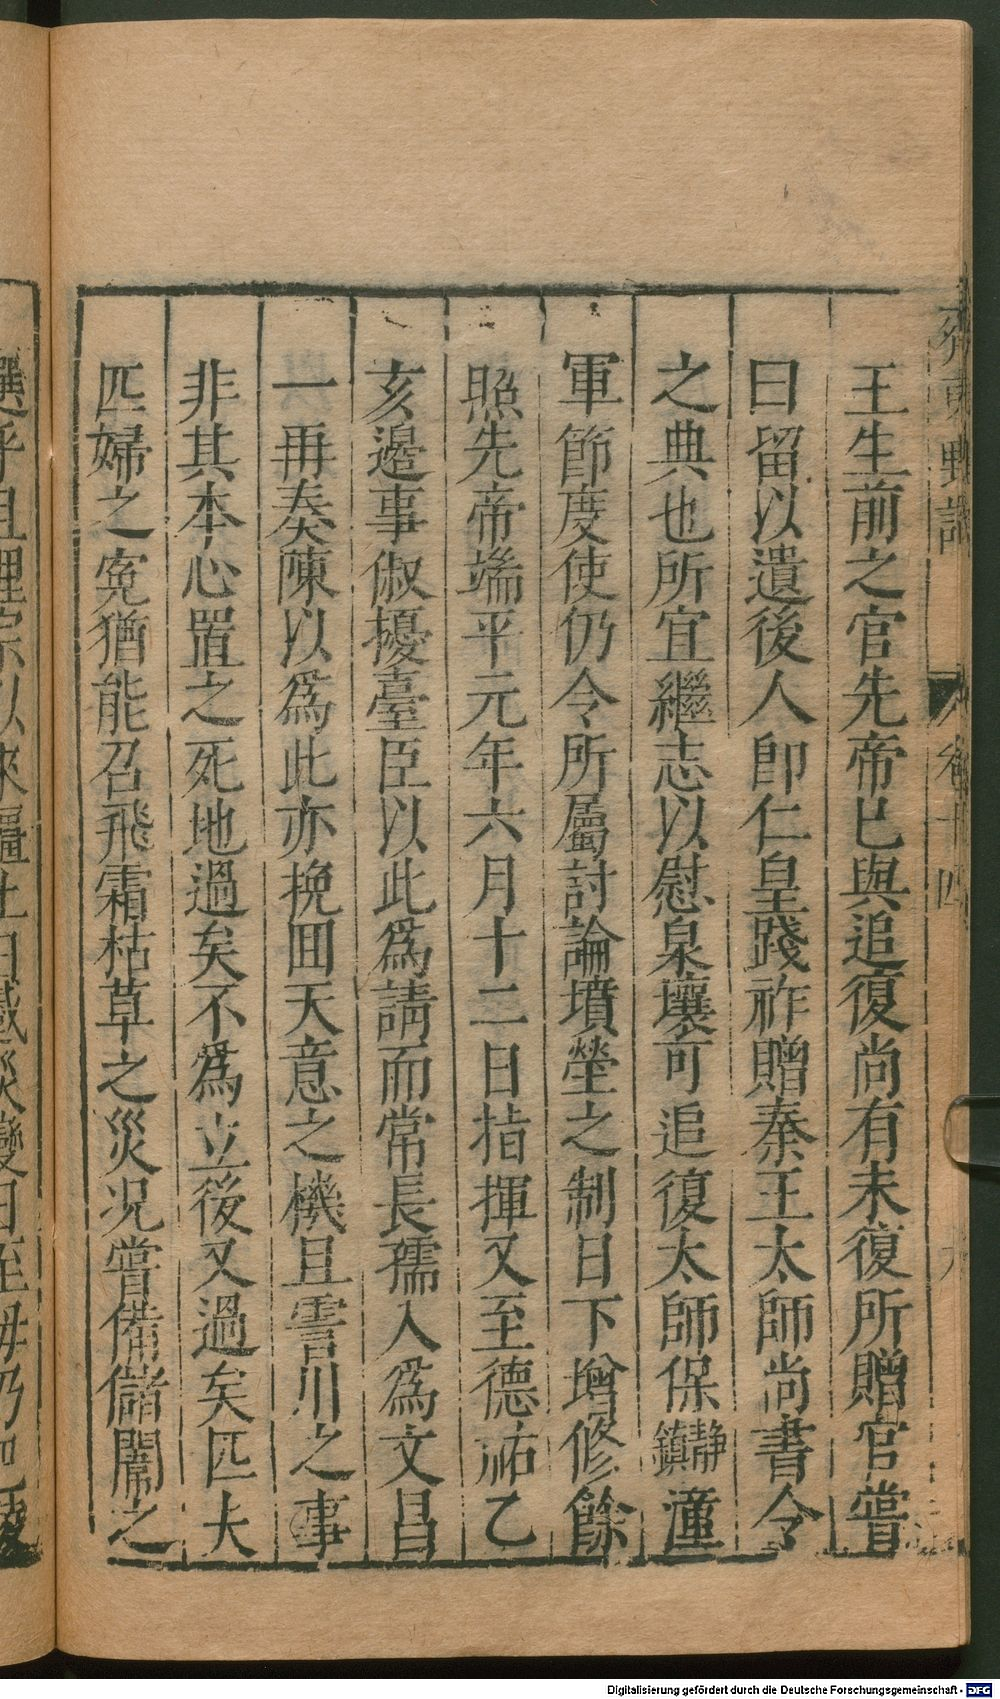 齊東野語
卷十四
九
王生前之官先帝已與追復尚有未復所贈官嘗
曰留以遺後人卽仁皇踐祚贈秦王太師尚書令
之典也所宜繼志以慰泉壤可追復太師保靜鎮潼
軍節度使仍令所屬討論墳塋之制日下增修餘
照先帝端平元年六月十二日指揮又至德祐乙
亥邊事俶擾臺臣以此爲請而常長孺入爲文昌
一再奏陳以爲此亦挽回天意之機且霅川之事
非其本心置之死地過矣不爲立後又過矣匹夫
匹婦之寃猶能召飛霜枯草之災况嘗備儲闈之
Digitalisierung gefördert durch die Deutsche Forschungsgemeinschaft - DFG